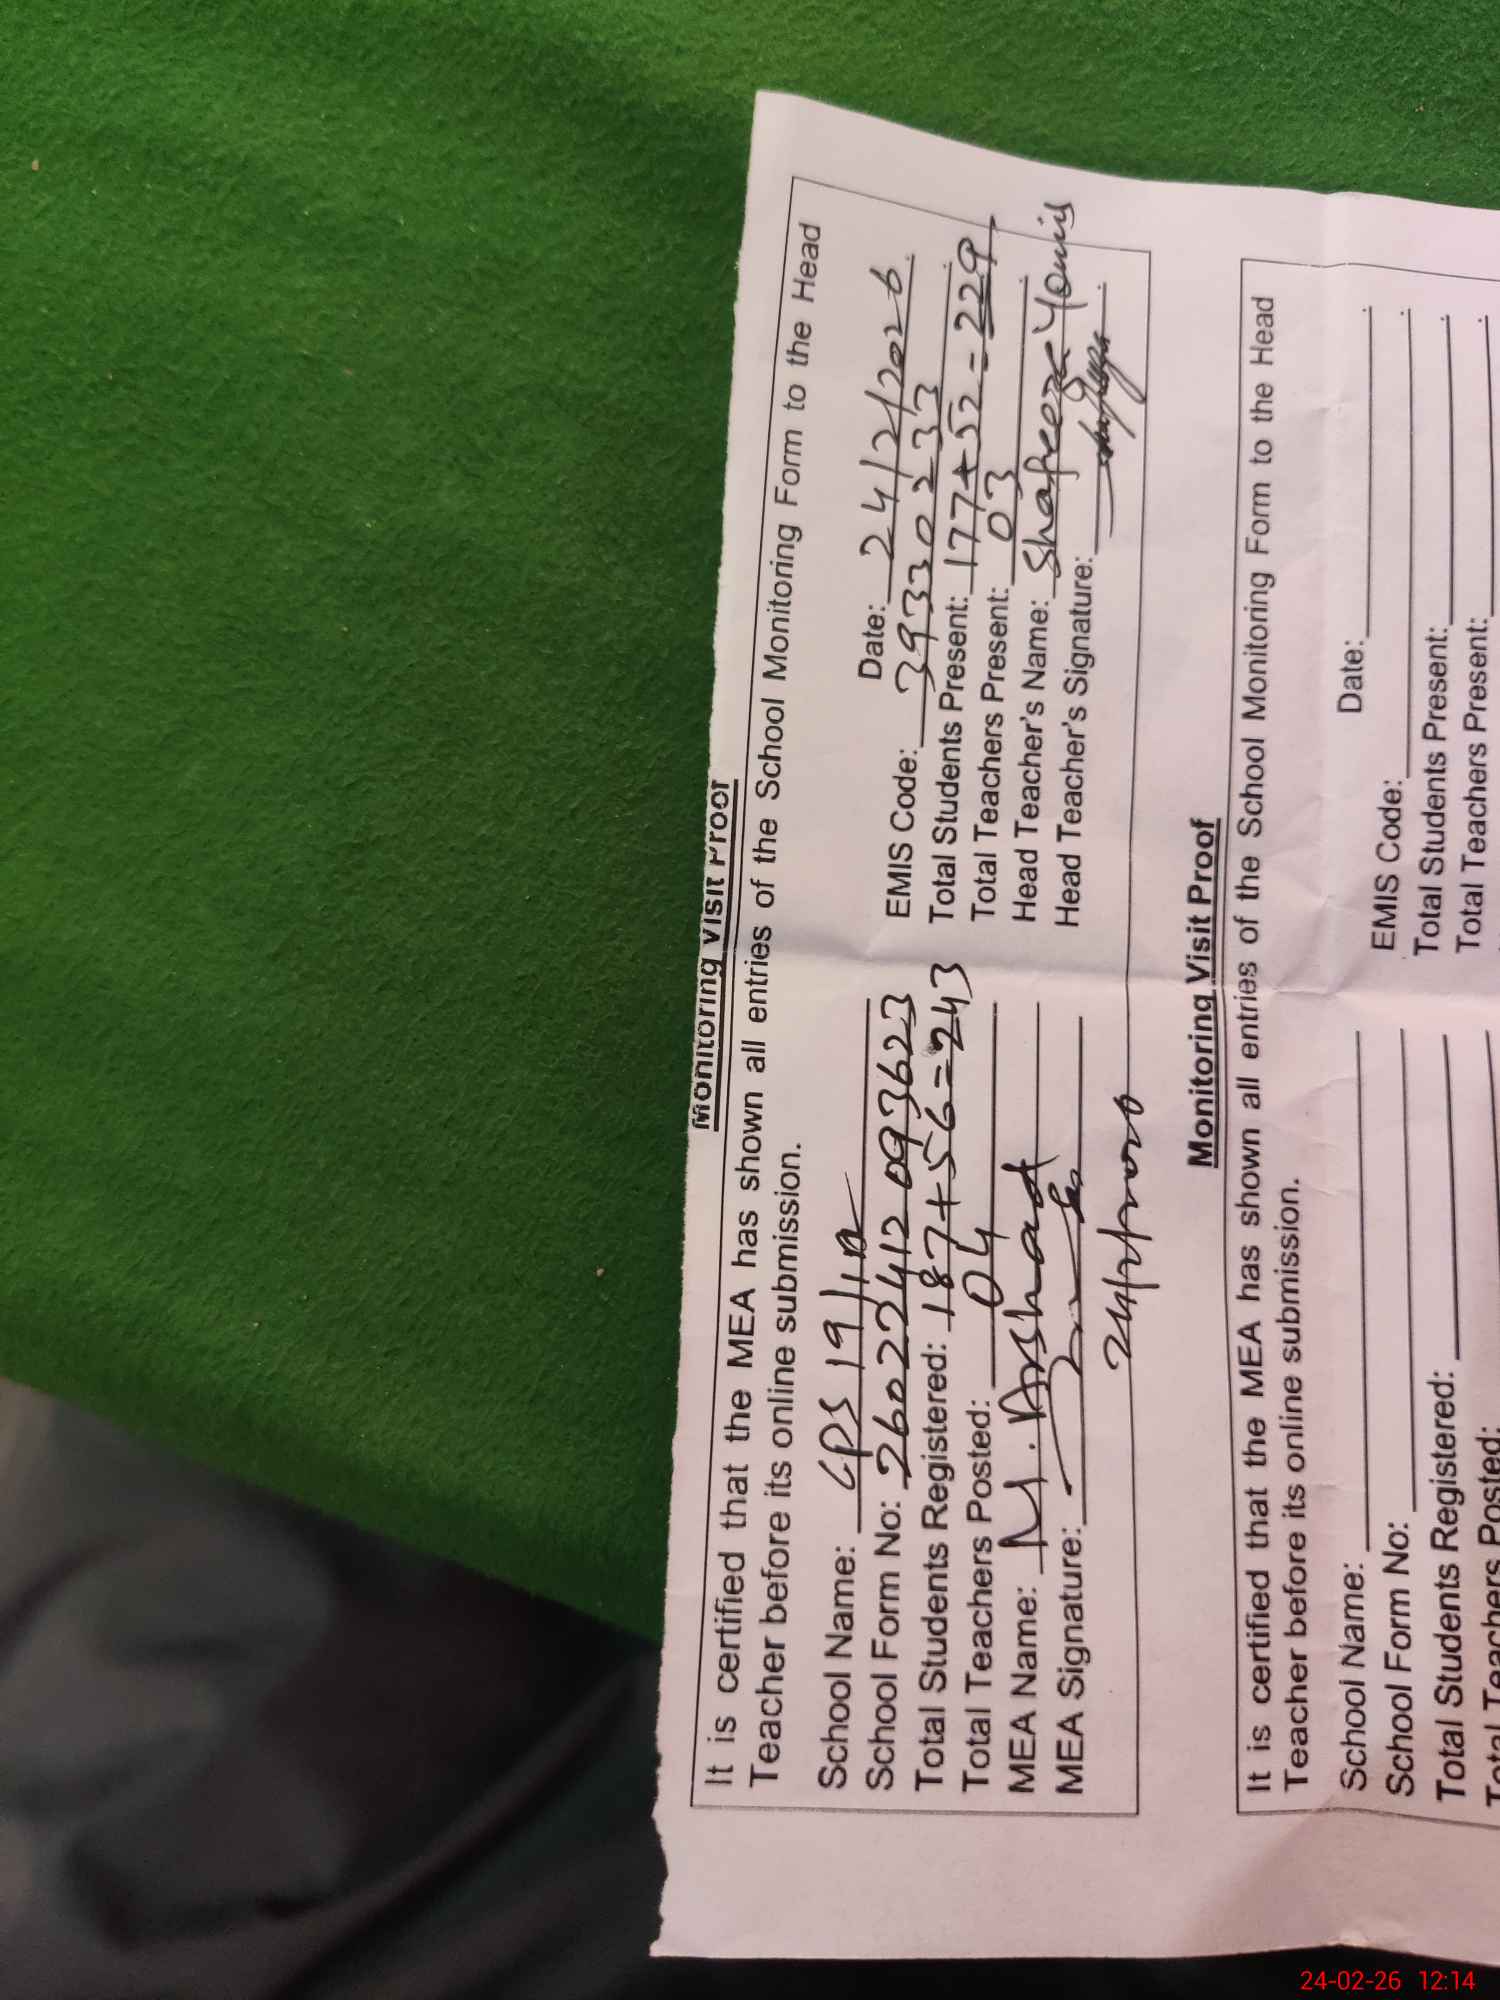 Monitoring Visit Proof
It is certified that the MEA has shown all entries of the School Monitoring Form to the Head
Teacher before its online submission.
Date: 24/2/2026
School Name: CPS 19/1
EMIS Code: 39330233
School Form No: 26022412093623
Total Students Present: 177+52=229
Total Students Registered: 187+56=243
Total Teachers Present: 03
Total Teachers Posted: 04
Head Teacher's Name: Younis
MEA Name: M. Arshad
Head Teacher's Signature:
MEA Signature:
Monitoring Visit Proof
It is certified that the MEA has shown all entries of the School Monitoring Form to the Head
Teacher before its online submission.
Date:
School Name:
EMIS Code:
School Form No:
Total Students Present:
Total Students Registered:
Total Teachers Present:
Total Teachers Posted:
24-02-26 12:14